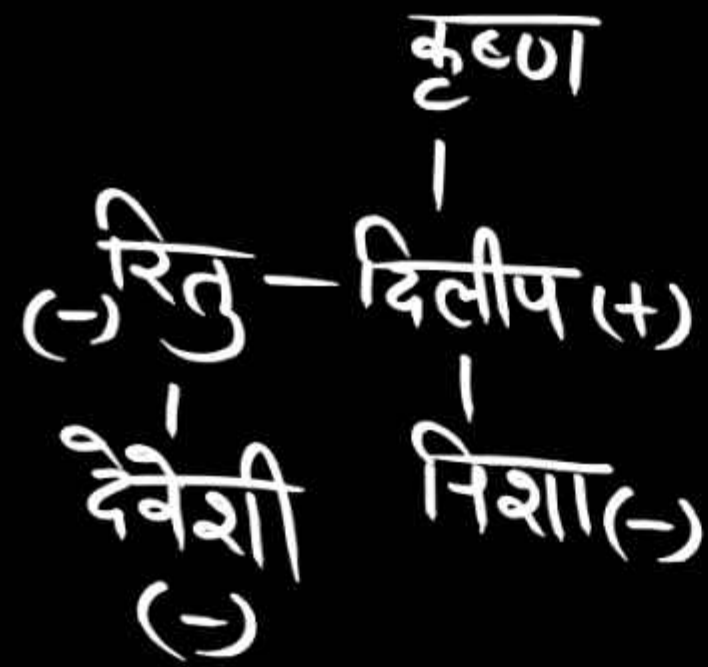 कृष्ण
(-) रितु - दिलीप (+)
देवेशी निशा (-)
(-)